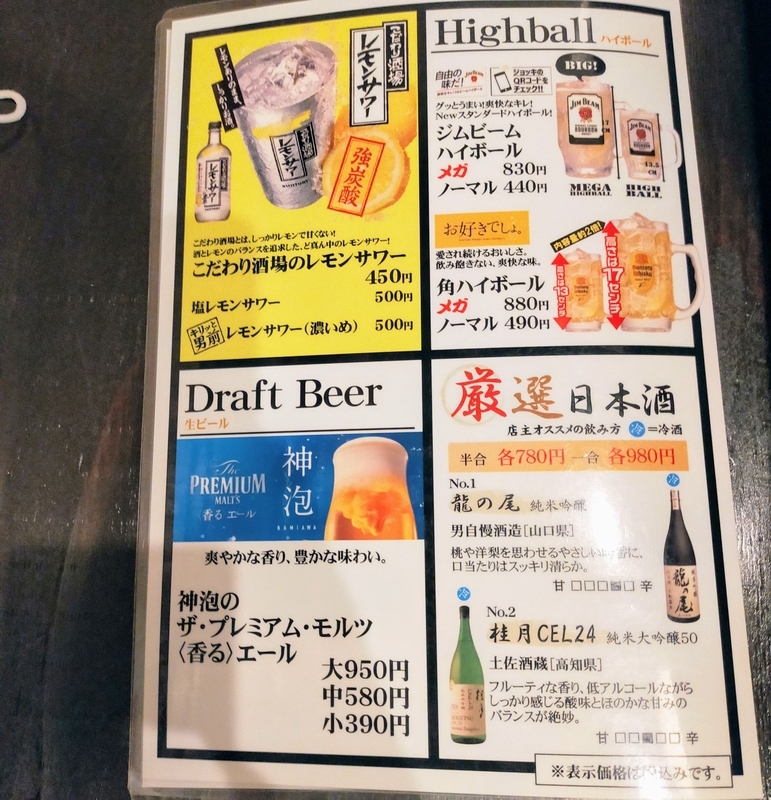 レモンありのまま
しっかりお酒
こだわり酒場
レモンサワー
こだわり酒場
レモンサワー
レモンサワー
SUNTORY
強炭酸
こだわり酒場とは、しっかりレモンで甘くない!
酒とレモンのバランスを追求した、ど真ん中のレモンサワー!
こだわり酒場のレモンサワー
450円
塩レモンサワー 500円
キリッと男前 レモンサワー(濃いめ) 500円
Highball ハイボール
自由の味だ!
ジョッキの
QRコードを
チェック!!
グッとうまい!爽快なキレ!
Newスタンダードハイボール!
ジムビーム
ハイボール
メガ 830円
ノーマル 440円
BIG!
JIM BEAM
BOURBON
JIM BEAM
17
CM
13.5
CM
MEGA
HIGHBALL
HIGH
BALL
お好きでしょ。
愛され続けるおいしさ。
飲み飽きない、爽快な味。
角ハイボール
メガ 880円
ノーマル 490円
内容量約2倍!
高さは13センチ
高さは17センチ
Draft Beer
生ビール
The
PREMIUM
MALT'S
香る エール
神泡
KAMIAWA
爽やかな香り、豊かな味わい。
神泡の
ザ・プレミアム・モルツ
〈香る〉エール
大950円
中580円
小390円
厳選日本酒
店主オススメの飲み方 冷=冷酒
半合 各780円 一合 各980円
No.1
龍の尾 純米吟醸
男自慢酒造[山口県]
桃や洋梨を思わせるやさしい吟香に、
口当たりはスッキリ清らか。
甘 □□□■□ 辛
冷
龍の尾
冷
No.2
桂月CEL24 純米大吟醸50
土佐酒蔵[高知県]
フルーティな香り、低アルコールながら
しっかり感じる酸味とほのかな甘みの
バランスが絶妙。
甘 □□■□□ 辛
※表示価格は税込みです。